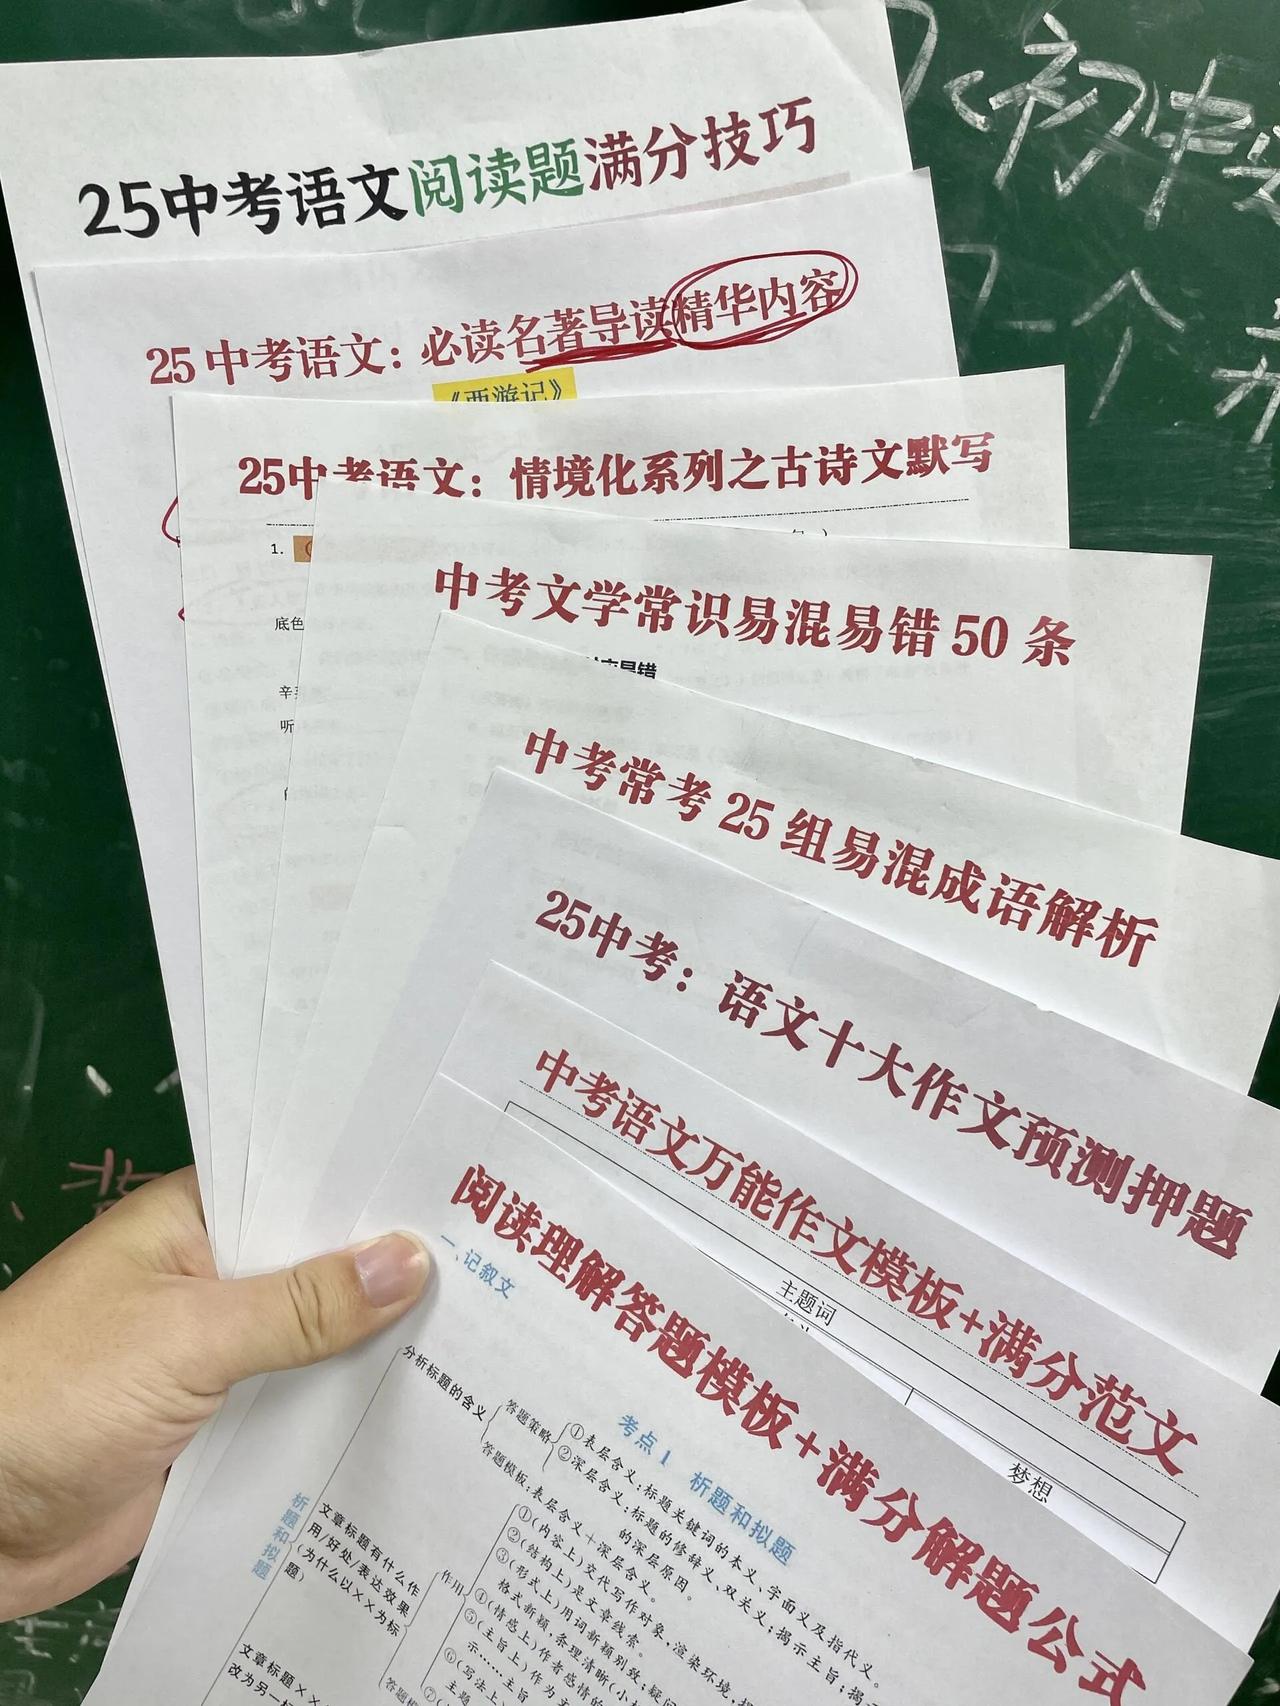 25中考语文阅读题满分技巧
25中考语文：必读名著导读精华内容
《西游记》
25中考语文：情境化系列之古诗文默写
1.
底色
辛
听
中考文学常识易混易错50条
中考常考25组易混成语解析
25中考：语文十大作文预测押题
中考语文万能作文模板+满分范文
主题词
梦想
阅读理解答题模板+满分解题公式
一、记叙文
考点1 析题和拟题
析题和拟题
分析标题的含义
答题策略
①表层含义：标题关键词的本义、字面义及指代义。
②深层含义：标题的修辞义、双关义；揭示主旨；揭
的深层原因。
答题模板：表层含义+深层含义。
文章标题有什么作
用/好处/表达效果
（为什么以××为标
题）
作用
①（内容上）交代写作对象，渲染环境，
②（结构上）是文章线索。
③（形式上）用词新颖别致；疑问
格式新颖，条理清晰（小标
④（情感上）作者感情的
⑤（主旨上）作为
示……主旨
⑥（写法上）
主题
⑦（
答题模
文章标题××
改为另一标
初中
个